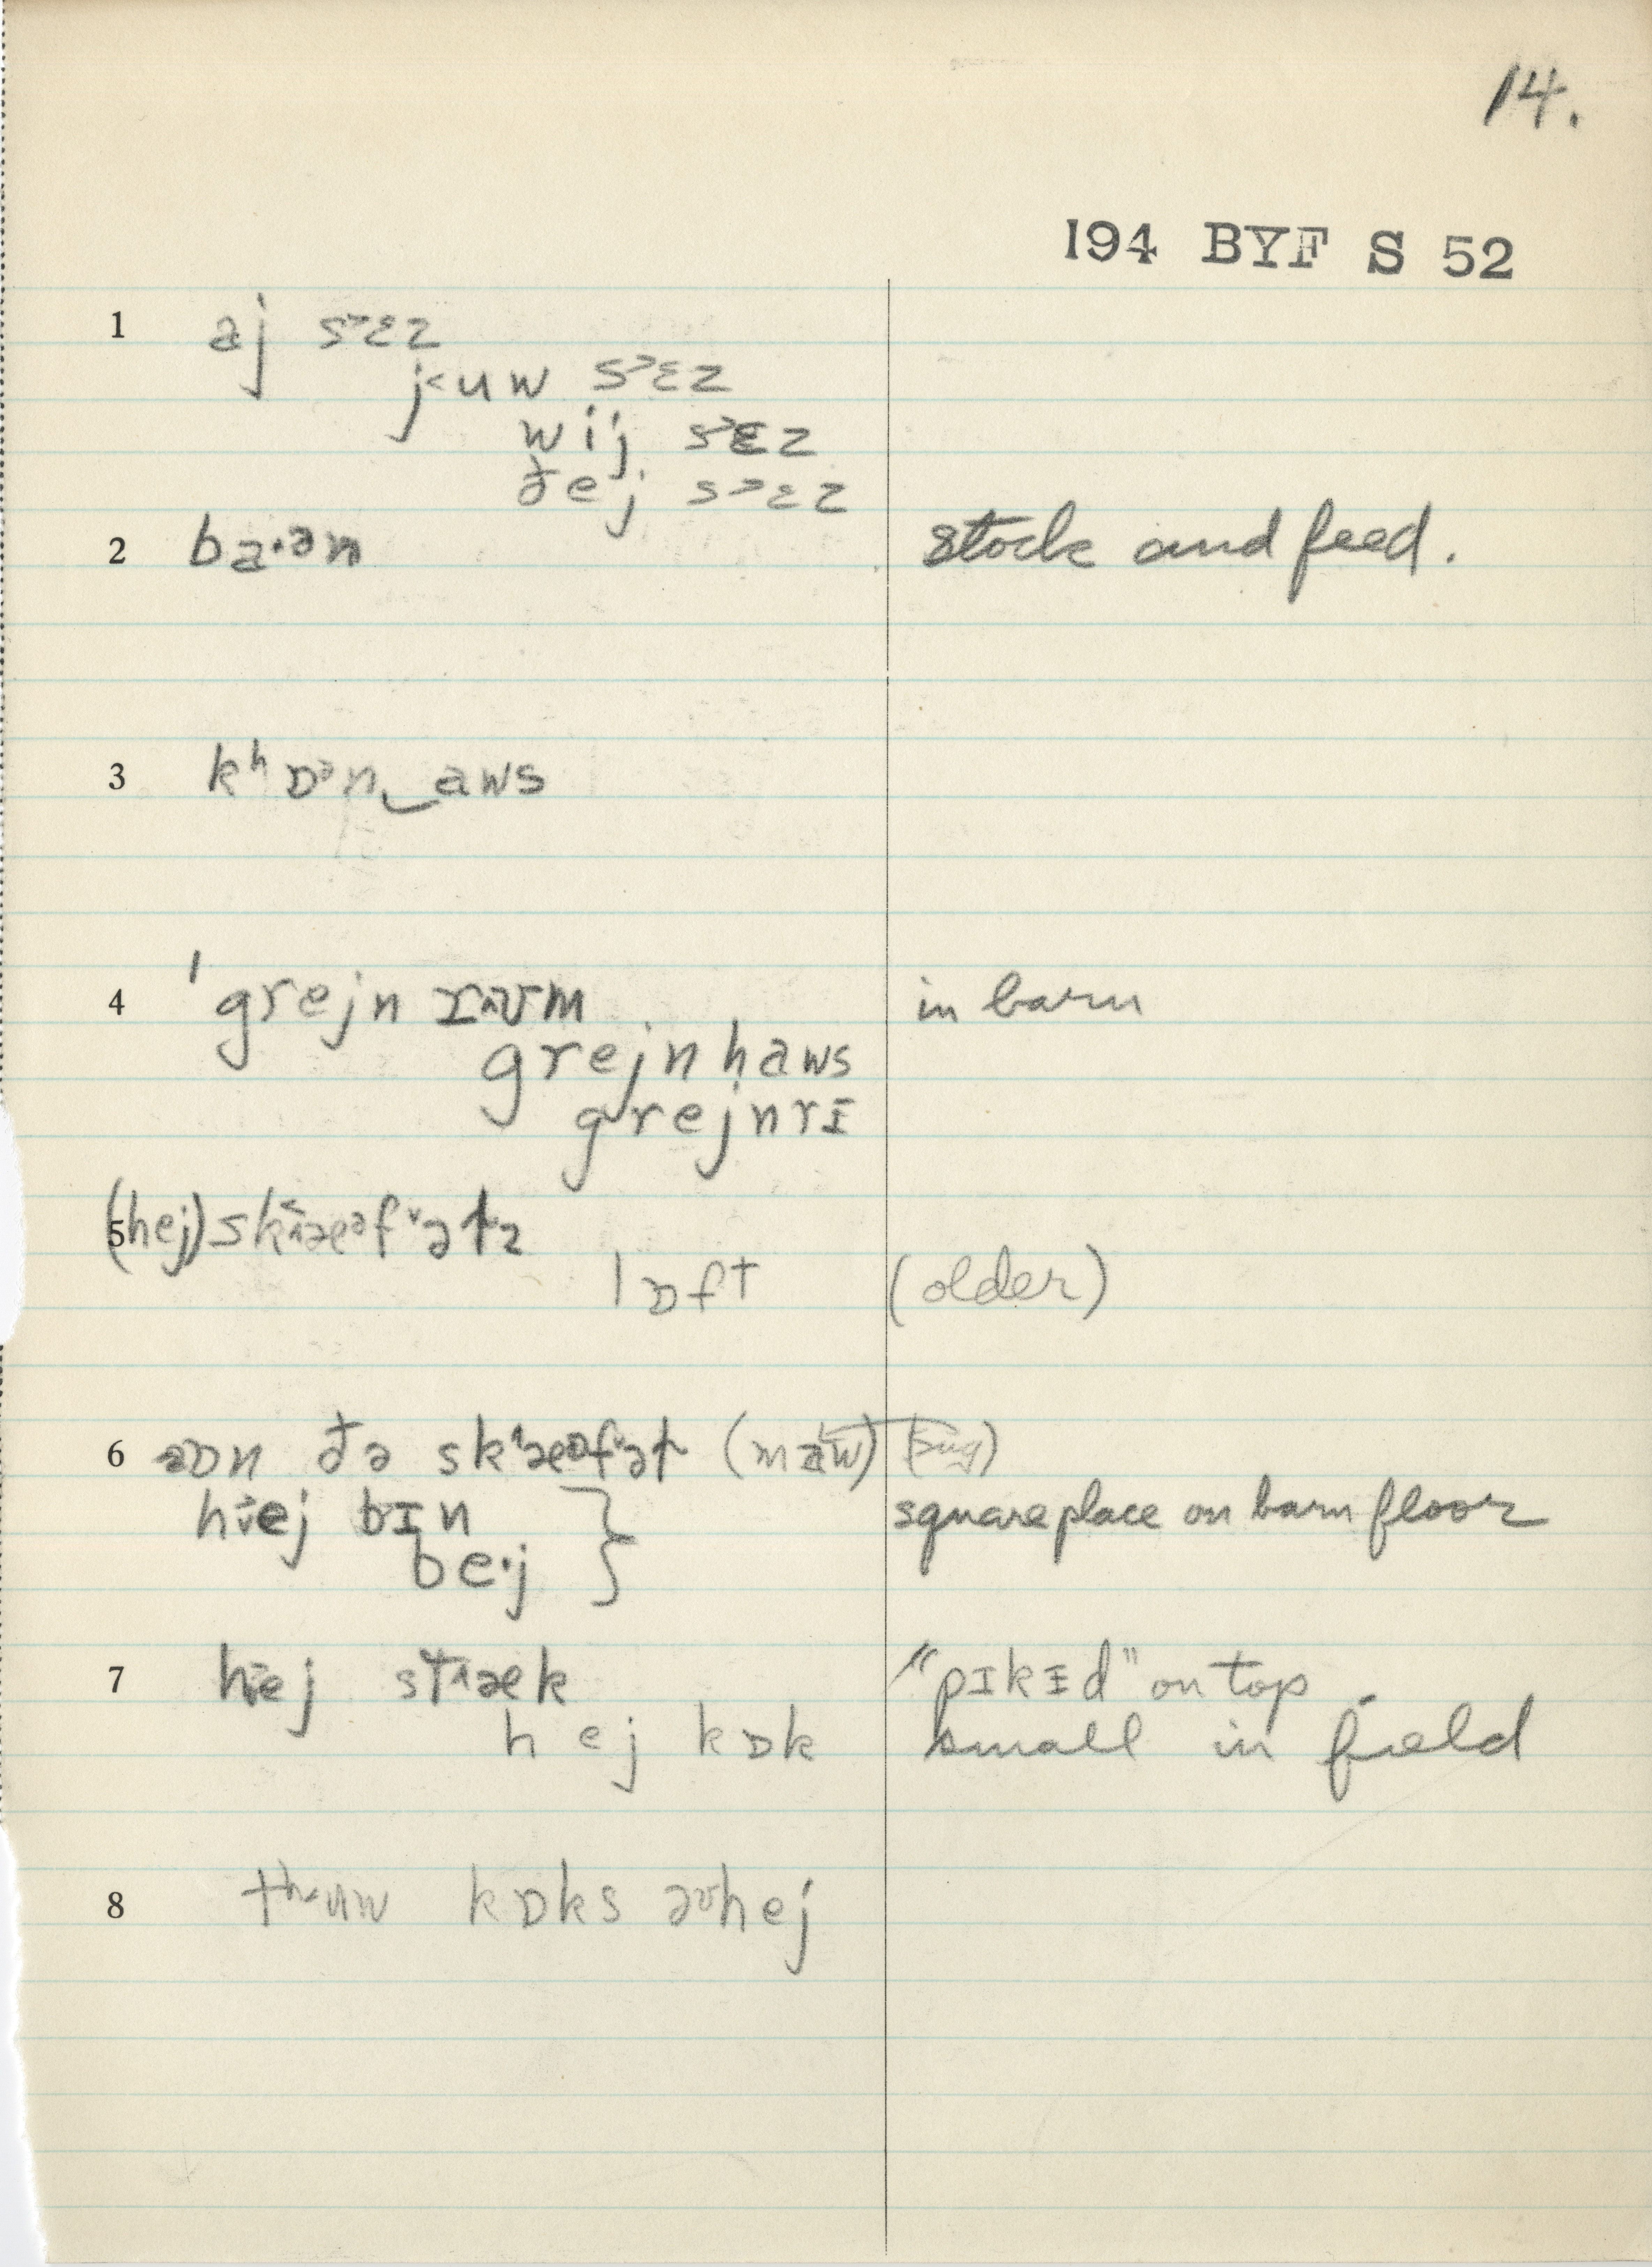 14.
194 BYF S 52
1 aj s˃ɛz
j˂uw s˃ɛz
wij s˃ɛz
ðej s˃ɛz
2 ba·ən stock and feed.
3 kʰɒᵊn‿aws
4 ˈgrejn rʉm in barn
grejnhaws
grejnrɪ
5 (hej)
lɒft (older)
6 ðə
hej bɪn } square place on barn floor
be·j
7 hej st˄æk "pɪkɪd" on top
hej kɒk small in field
8 tʰ˂uw kɒks əvhej